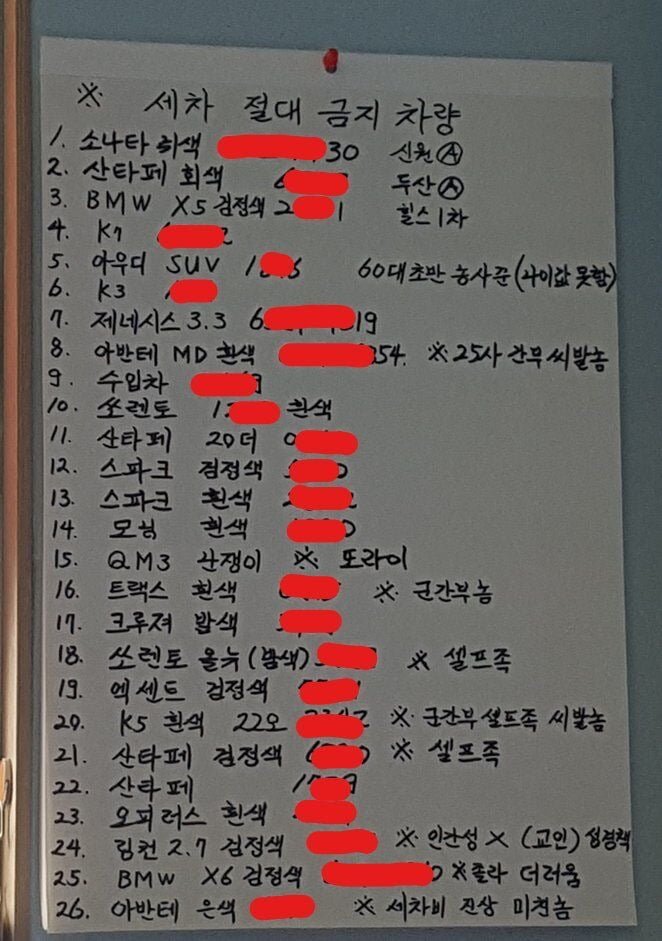 ※ 세차 절대 금지 차량
1. 소나타 회색 30 신원Ⓐ
2. 산타페 회색 6 두산Ⓐ
3. BMW X5 검정색 2 1 힐스 1차
4. K7
5. 아우디 SUV 1 6 60대초반 농사꾼 (나이값 못함)
6. K3
7. 제네시스 3.3 6 19
8. 아반테 MD 흰색 354. ※ 25사 간부 씨발놈
9. 수입차
10. 쏘렌토 12 흰색
11. 산타페 20더 0
12. 스파크 검정색 0
13. 스파크 흰색
14. 모닝 흰색 0
15. QM3 난쟁이 ※ 또라이
16. 트랙스 흰색 ※ 군간부놈
17. 크루져 밤색
18. 쏘렌토 올뉴 (밤색) ※ 셀프족
19. 엑센트 검정색
20. K5 흰색 22오 ※ 군간부 셀프족 씨발놈
21. 산타페 검정색 6 0 ※ 셀프족
22. 산타페 17 9
23. 오피러스 흰색
24. 링컨 2.7 검정색 ※ 인간성 X (교인) 성경책
25. BMW X6 검정색 0 ※ 졸라 더러움
26. 아반테 은색 ※ 세차비 진상 미친놈